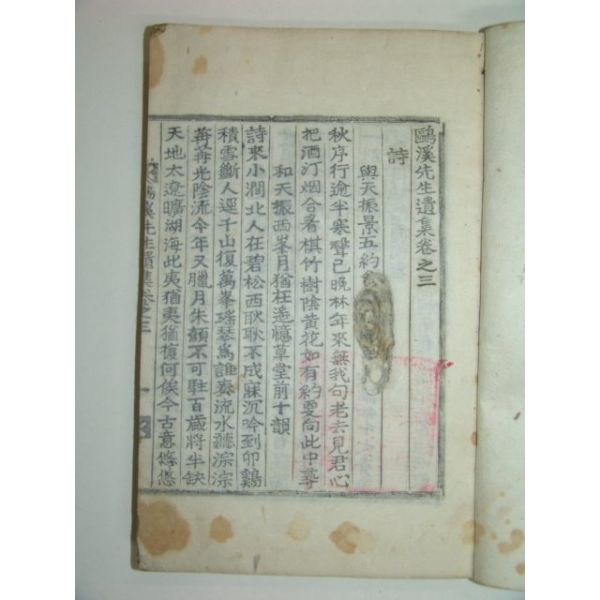 鷗溪先生遺集卷之三
詩
與天振景五約
秋序行逾半寒聲已晩林年來無我句老去見君心
把酒汀烟合看棋竹樹陰黃花如有約要向此中尋
和天振西峯月猶在遙憶草堂前十韻
詩來小澗北人在碧松西耿耿不成寐沉吟到卯鷄
積雪斷人逕千山復萬峯瑤琴爲誰奏流水聽淙淙
苒苒光陰流今年又臘月朱顔不可駐百歲將半缺
天地太遼曠湖海此夷猶夷猶復何俟今古意悠悠
溪先生遺集卷之三 一